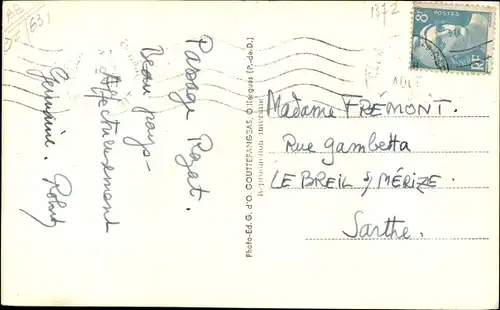 1372
AA
63
8F
POSTES
RF
Passage Royat.
Beau pays -
Affectueusement
Germaine. Robert
Photo-Ed. G. d'O. GOUTTEFANGEAS, Olliergues (P.-de-D.)
Reproduction interdite
Madame FRÉMONT.
Rue Gambetta
LE BREIL s/ MÉRIZE.
Sarthe.